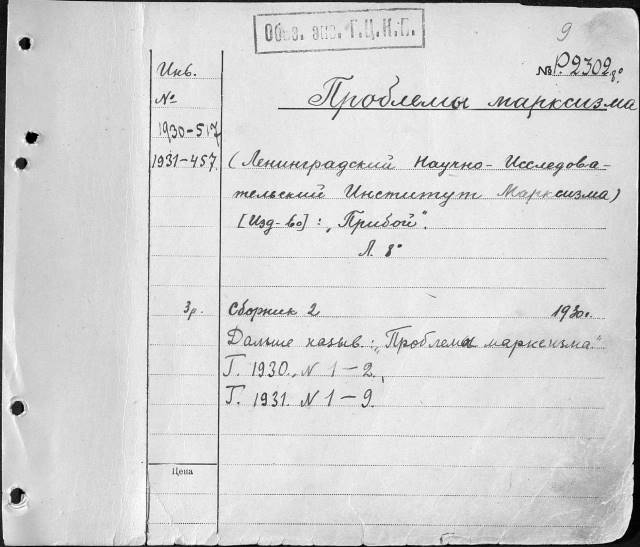 Обяз. экз. Г.Ц.К.П.
9
№ Р.2302 8°
Инв.
№
1930-517
1931-457
Проблемы марксизма
(Ленинградский Научно-Исследова-
тельский Институт Марксизма)
[Изд-во]: „Прибой".
Л. 8°
3р. Сборник 2 1930г.
Дальше назыв.: „Проблемы марксизма"
Г. 1930. N 1-2.
Г. 1931. N 1-9.
Цена